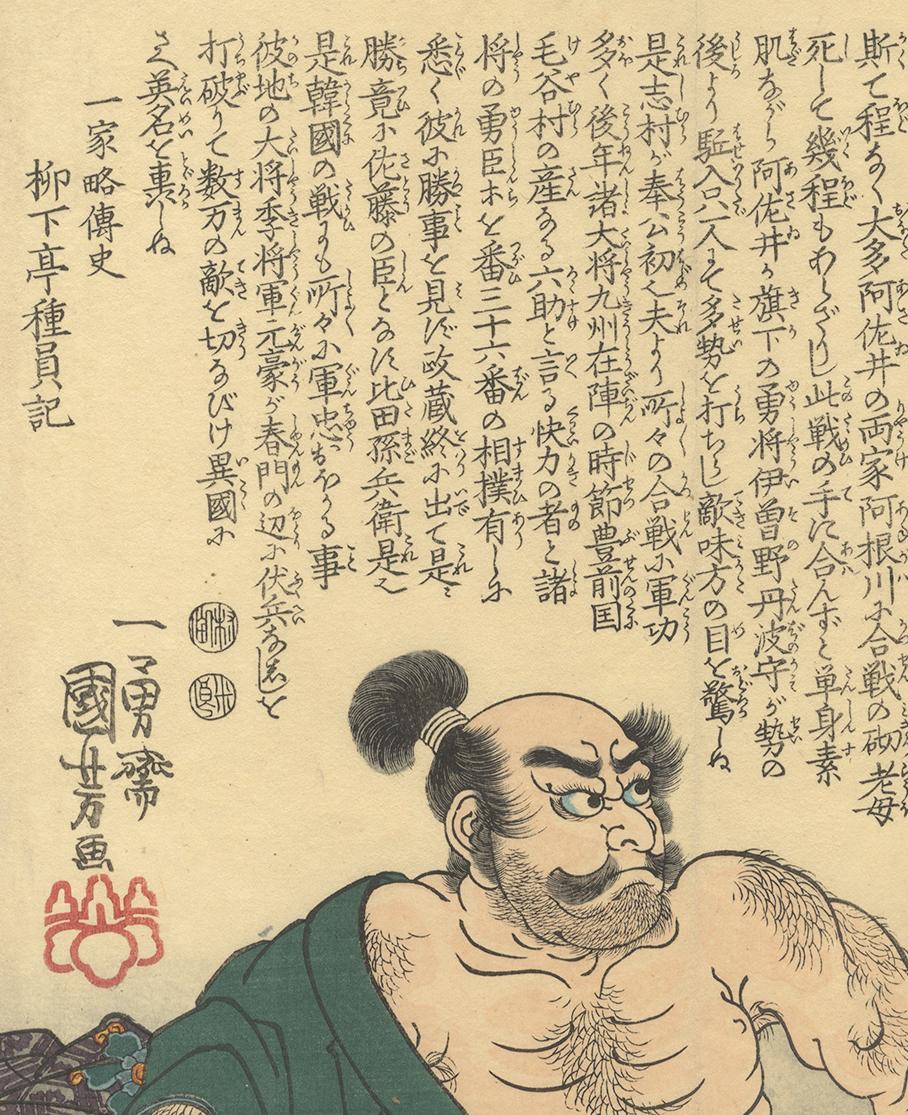 斯て程なく大多阿佐井の両家阿根川に合戦の砌老母
死して幾程もあらざりし此戦の手に合んずと単身素
肌ながら阿佐井が旗下の勇将伊曽野丹波守が勢の
後より駈入只一人にて多勢を打ちらし敵味方の目を驚しぬ
是志村が奉公初也夫より所々の合戦に軍功
多く後年諸大将九州在陣の時節豊前国
毛谷村の産なる六助と言る快力の者と諸
将の勇臣等と番三十六番の相撲有しに
悉く彼に勝事を見て政蔵終に出て是に
勝竟に佐藤の臣となす比田孫兵衛是也
是韓國の戦にも所々に軍忠おほかる事
彼地の大将季将軍元豪が春門の辺に伏兵なしゝを
打破りて数万の敵を切なびけ異國に
さへ英名を轟しぬ
一家略傳史
柳下亭種員記
村田
米良
一勇齋
國芳画